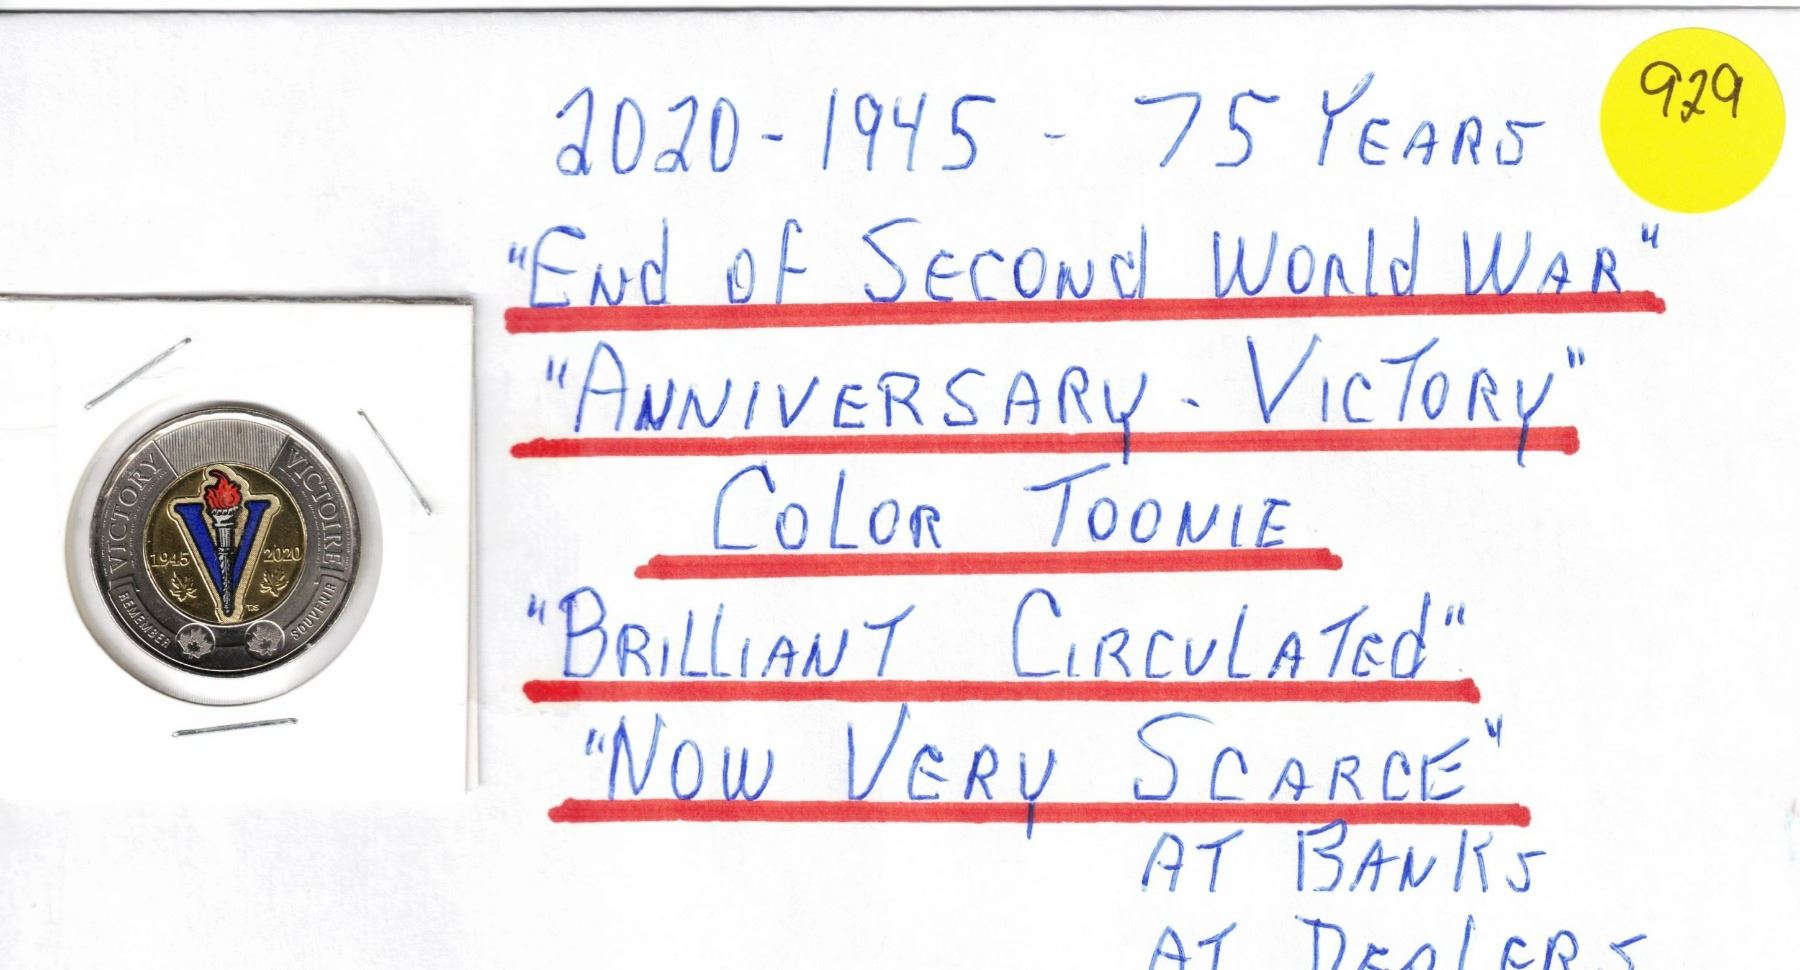 929
2020 - 1945 - 75 YEARS
"End of Second World War"
"Anniversary - Victory"
Color Toonie
"Brilliant Circulated"
"Now Very Scarce"
At Banks
At Dealers
VICTORY
VICTOIRE
1945
2020
REMEMBER
SOUVENIR